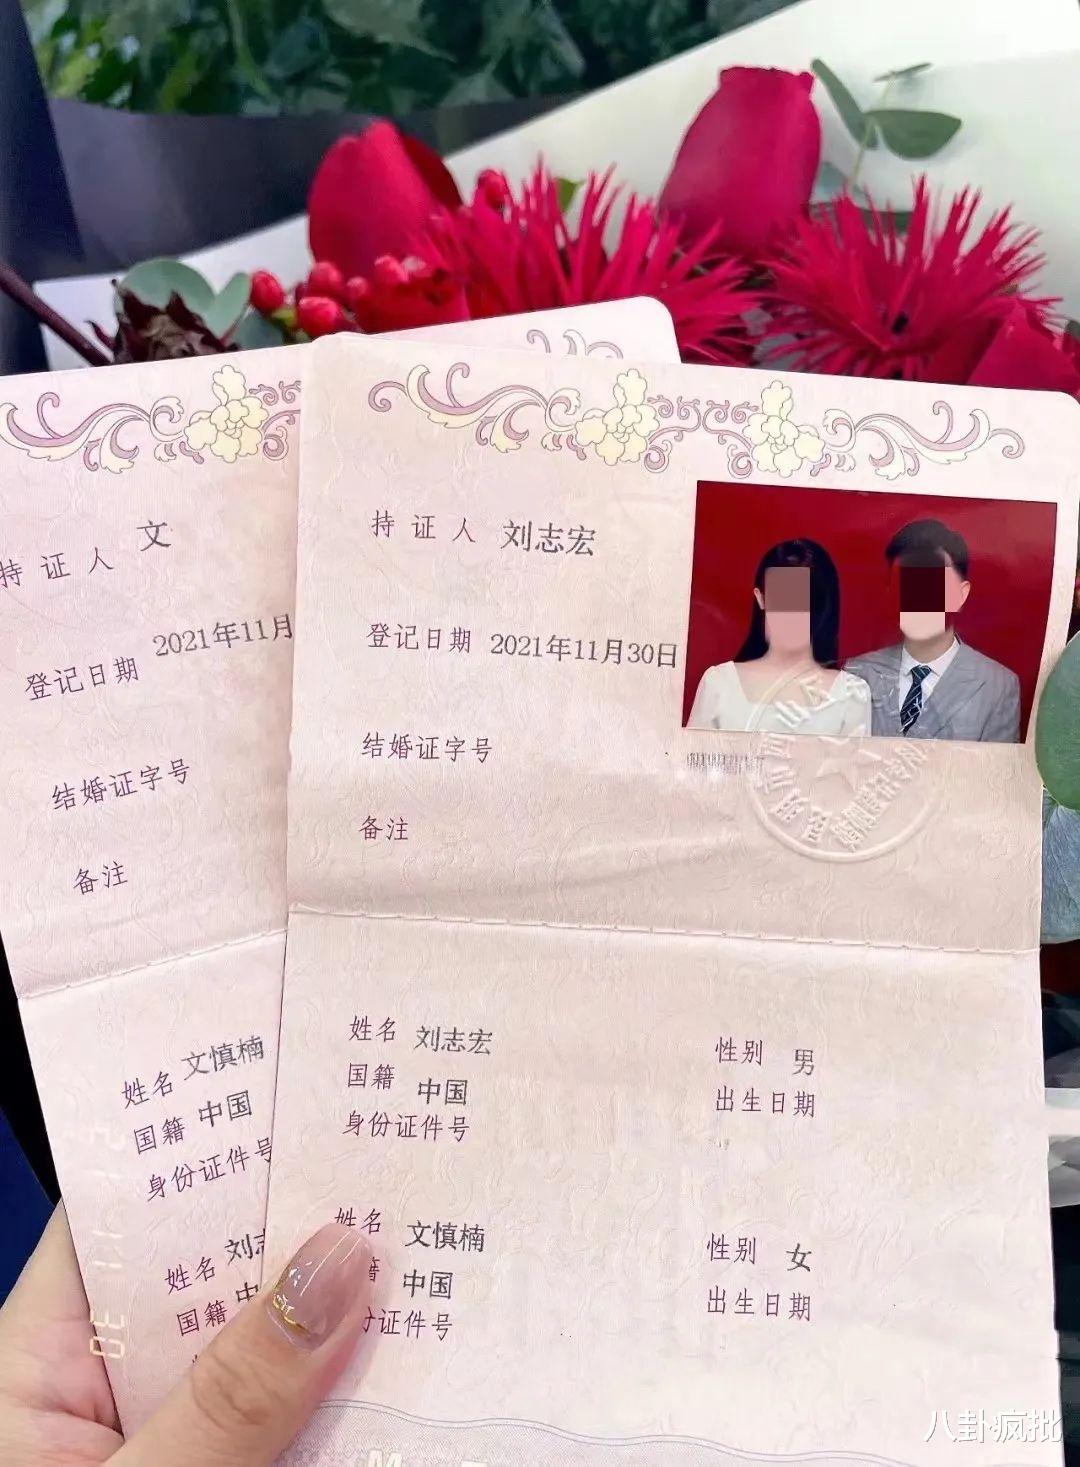 持证人 文
登记日期 2021年11月
结婚证字号
备注
姓名 文慎楠
国籍 中国
身份证件号
姓名 刘志
国籍 中
持证人 刘志宏
登记日期 2021年11月30日
结婚证字号
备注
姓名 刘志宏 性别 男
国籍 中国 出生日期
身份证件号
姓名 文慎楠 性别 女
籍 中国 出生日期
份证件号
八卦疯批